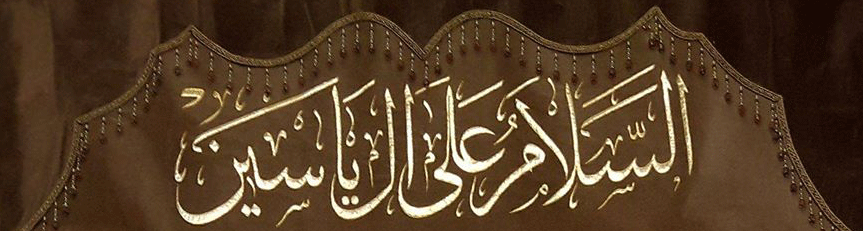 السَّلَامُ عَلَى ال يَاسِين